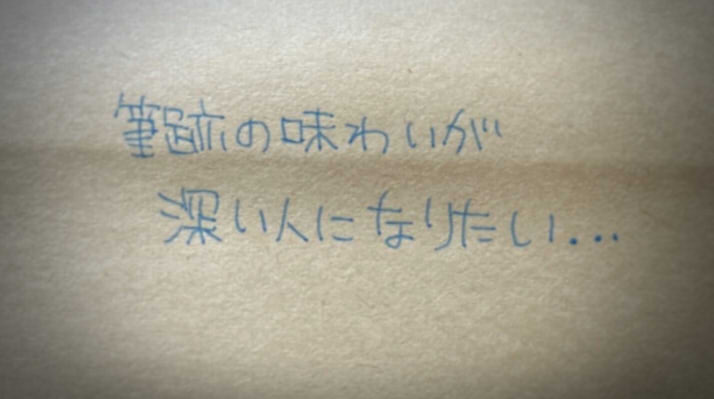 筆跡の味わいが
深い人になりたい...